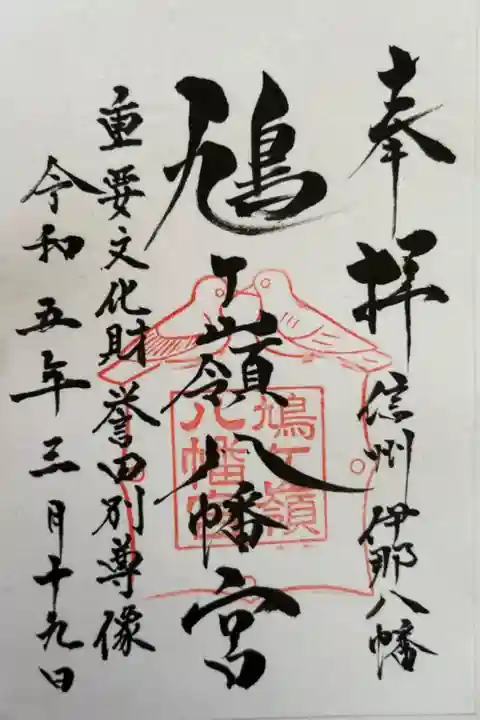 奉拝
信州 伊那八幡
鳩ヶ嶺八幡宮
鳩ヶ嶺
八幡宮
重要文化財 誉田別尊像
令和五年三月十九日